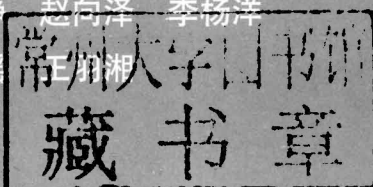 赵向泽 李杨洋
王羽湘
常州大学图书馆
藏书章